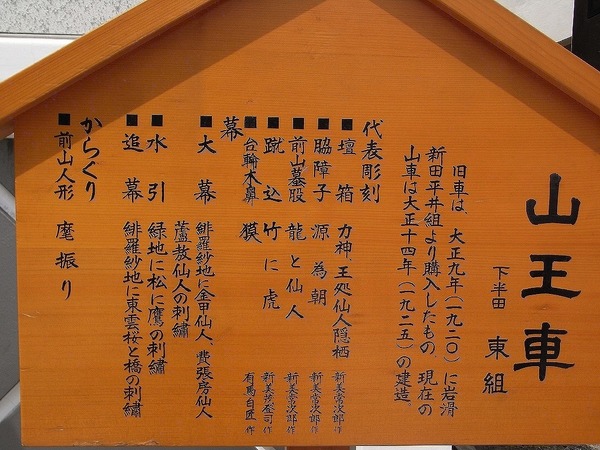 山王車
下半田 東組
旧車は、大正九年(一九二〇)に岩滑
新田平井組より購入したもの。現在の
山車は大正十四年(一九二五)の建造。
代表彫刻
■壇箱 力神、王処仙人隠栖 新美常次郎作
■脇障子 源為朝 新美常次郎作
■前山蟇股 龍と仙人 新美常次郎作
■蹴込 竹に虎 新美茂登司作
■台輪木鼻 獏 有馬白匠作
幕
■大幕 緋羅紗地に金甲仙人、費張房仙人
蘆敖仙人の刺繡
■水引 緑地に松に鷹の刺繡
■追幕 緋羅紗地に東雲桜と橋の刺繡
からくり
■前山人形 麾振り